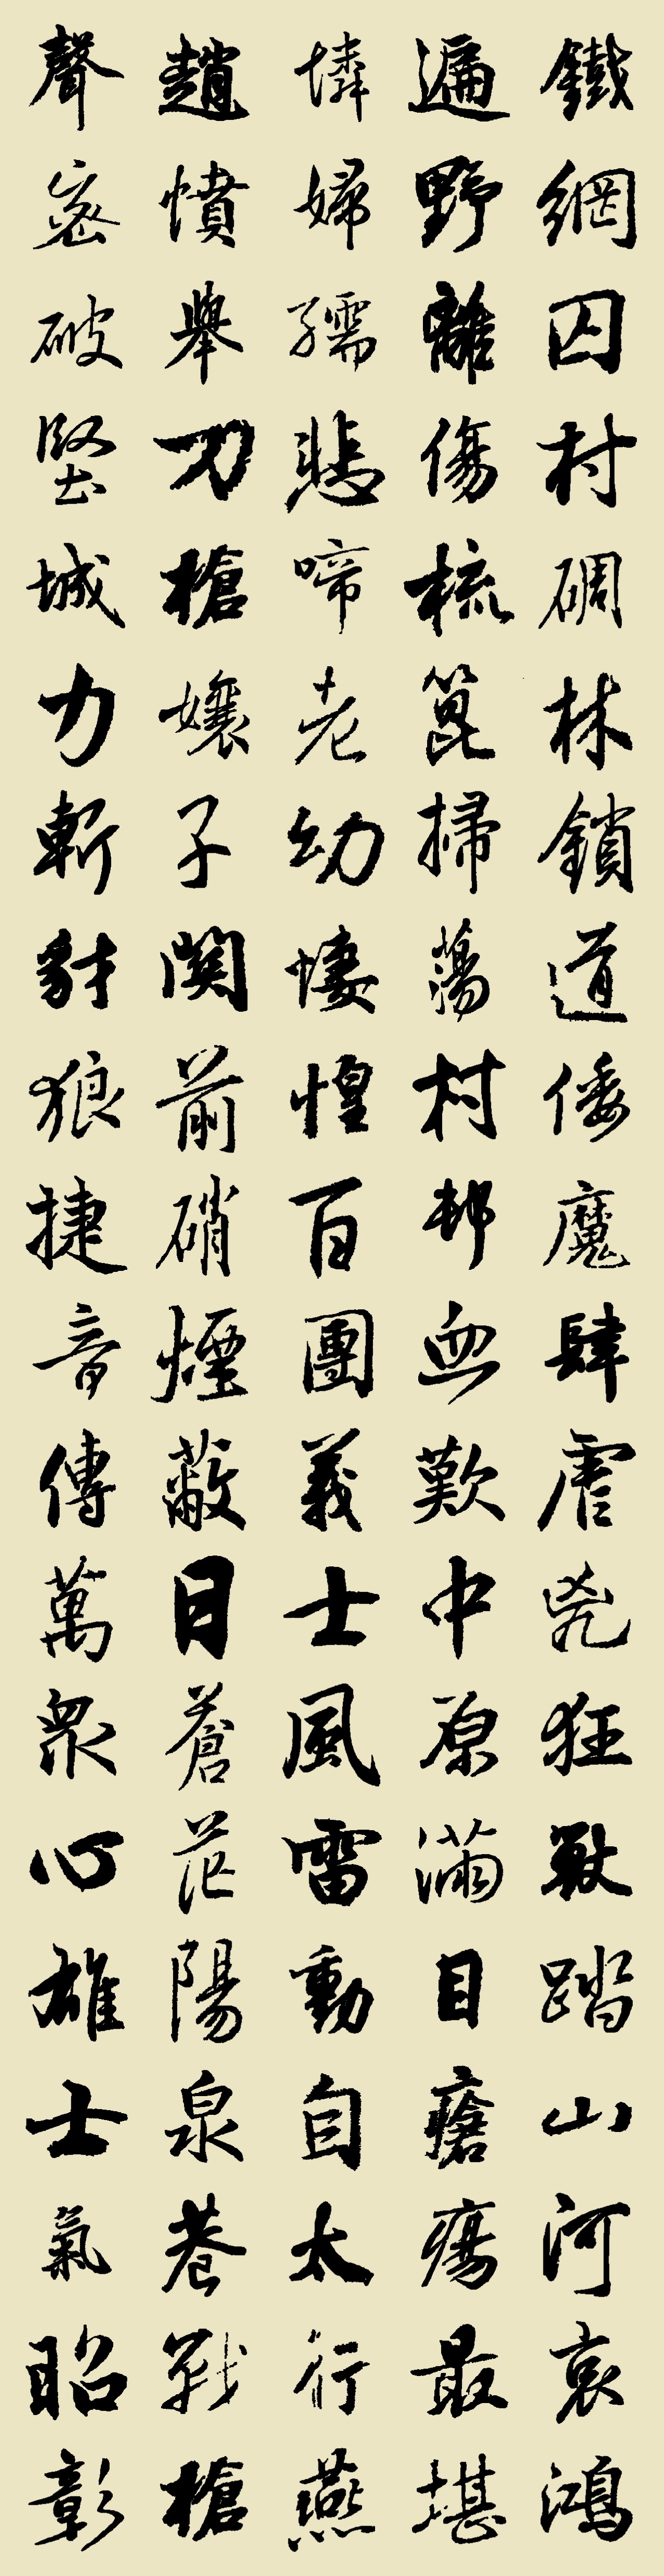 鐵網囚村碉林鎖道倭魔肆虐兇狂獸踏山河哀鴻
遍野離傷梳篦掃蕩村邨血歎中原滿目瘡瘍最堪
憐婦孺悲啼老幼悽惶百團義士風雷動自太行燕
趙憤舉刀槍孃子關前硝煙蔽日蒼茫陽泉巷戰槍
聲密破堅城力斬豺狼捷音傳萬眾心雄士氣昭彰